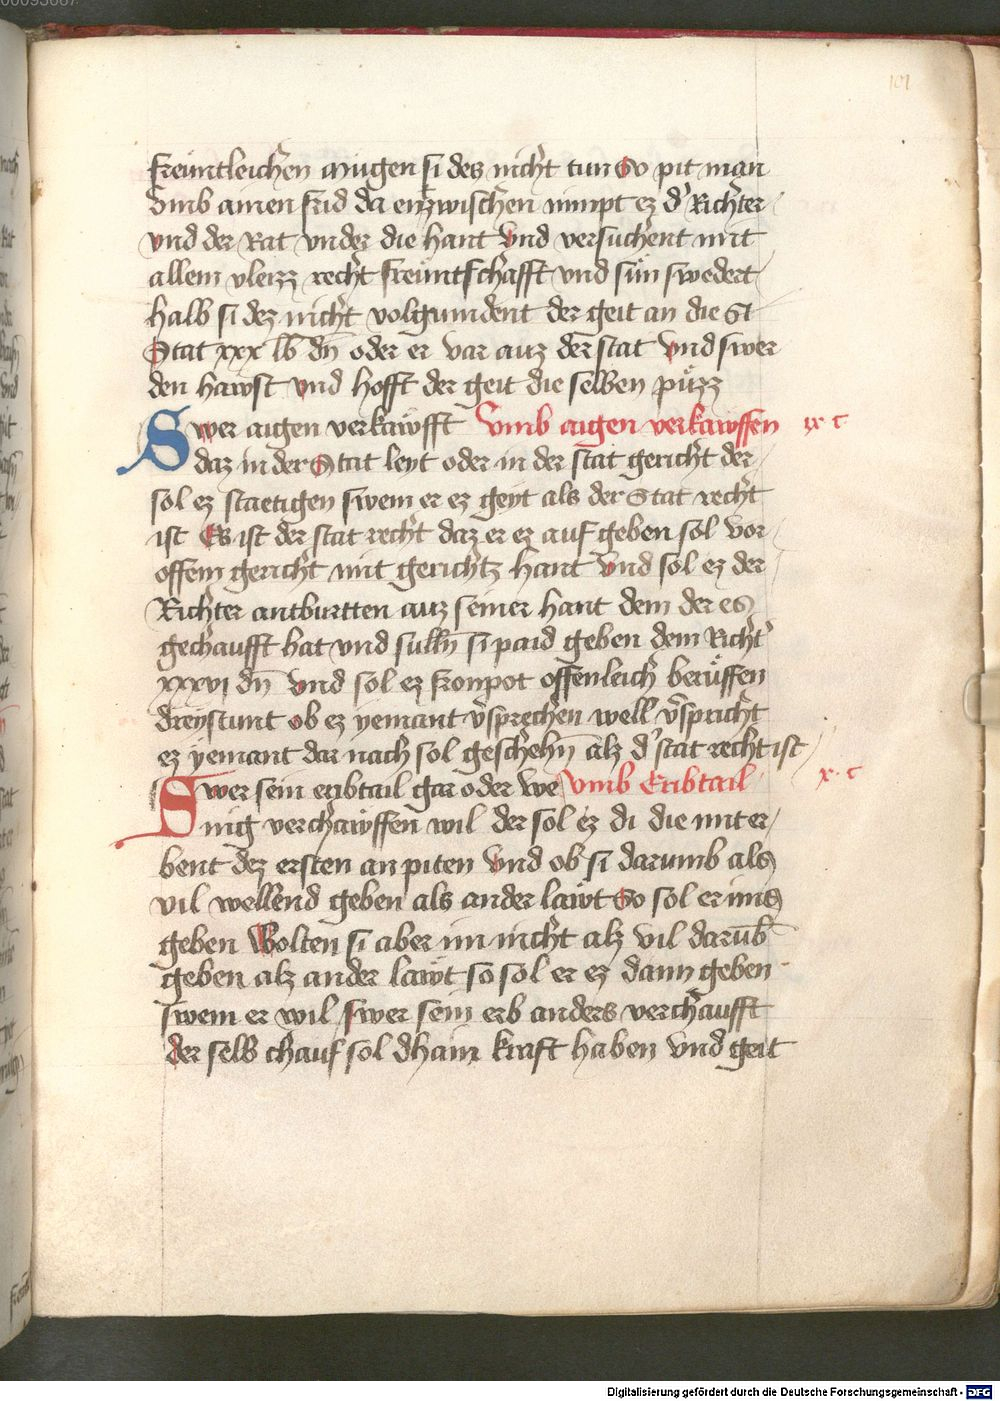 101
freüntleichen mügen si des nicht tun So pit man
vmb ainen frid da enzwischen nimpt ez d' Richter
vnd der Rat vnder die hant Vnd versuchent mit
allem vleizz recht freüntschafft vnd sün swedert
halb si dez nicht volgundent der geit an die St
Stat xxx lb dn̄ oder er var auz der stat Vnd swer
den hawst vnd hofft der geit die selben püzz
Swer aigen verkawfft Vmb aigen verkawffen ix c
daz in der Stat leyt oder in der stat gericht der
sol ez staetigen swem er ez geyt als der Stat recht
ist Es ist der stat recht daz er ez auf geben sol vor
offem gericht mit gerichtz hant Vnd sol ez der
Richter antburtten auz seiner hant dem der es
gechaufft hat vnd sulln̄ si paid geben dem Richt'
xxxvi dn̄ Vnd sol ez fronpot offenleich berüffen
dreystunt ob ez yemant v'sprechen well v'spricht
ez yemant dar nach sol geschehn̄ alz d' stat recht ist
Swer sein eribtail gar oder we Vmb Eribtail x c
nig verchawffen wil der sol ez di die mit er
bent dez ersten an piten Vnd ob si darumb als
vil wellend geben als ander lawt So sol er ims
geben Wolten si aber im nicht alz vil darūb
geben alz ander lawt so sol er ez dann geben
swem er wil swer sein erb anders verchaufft
der selb chauf sol dhain kraft haben Vnd geit
Digitalisierung gefördert durch die Deutsche Forschungsgemeinschaft - DFG